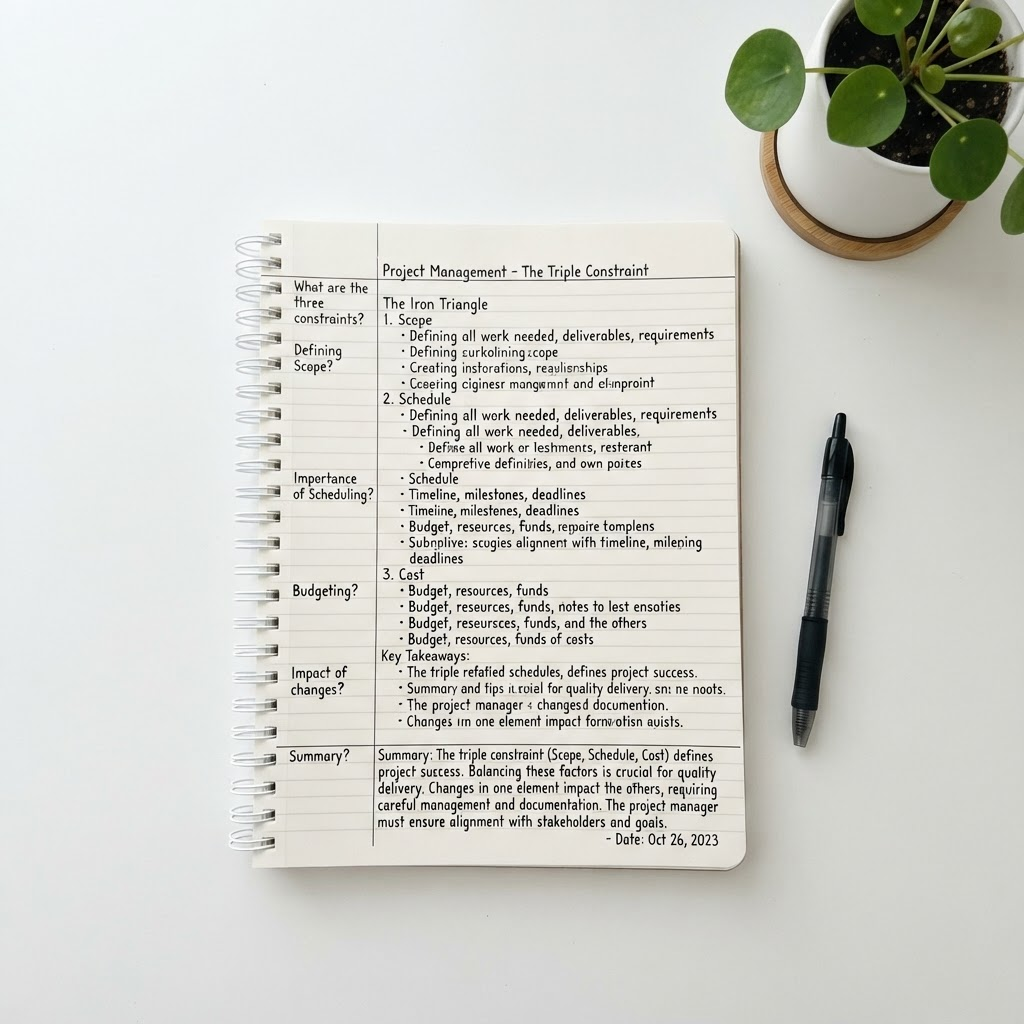 Project Management – The Triple Constraint
What are the
three
constraints?
The Iron Triangle
1. Scope
• Defining all work needed, deliverables, requirements
Defining
Scope?
• Defining
• Creating
• and
2. Schedule
• Defining all work needed, deliverables, requirements
• Defining all work needed, deliverables,
• all work or
• and own
Importance
of Scheduling?
• Schedule
• Timeline, milestones, deadlines
• Timeline, milestenes, deadlines
• Budget, resources, funds,
• alignment with timeline,
deadlines
3. Cost
Budgeting?
• Budget, resources, funds
• Budget, resources, funds, notes to lest
• Budget, funds, and the others
• Budget, resources, funds of costs
Key Takeaways:
Impact of
changes?
• The triple schedules, defines project success.
• Summary and for quality delivery.
• The project manager changed documention.
• Changes in one element impact
Summary?
Summary: The triple constraint (Scope, Schedule, Cost) defines
project success. Balancing these factors is crucial for quality
delivery. Changes in one element impact the others, requiring
careful management and documentation. The project manager
must ensure alignment with stakeholders and goals.
– Date: Oct 26, 2023